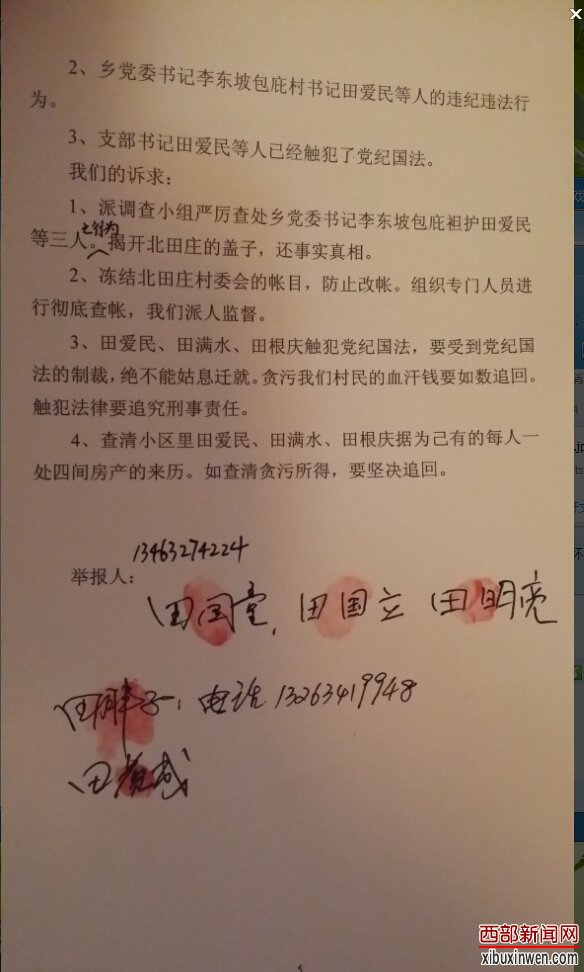 2、乡党委书记李东坡包庇村书记田爱民等人的违纪违法行
为。
3、支部书记田爱民等人已经触犯了党纪国法。
我们的诉求：
1、派调查小组严厉查处乡党委书记李东坡包庇袒护田爱民
等三人。揭开北田庄的盖子，还事实真相。
2、冻结北田庄村委会的帐目，防止改帐。组织专门人员进
行彻底查帐，我们派人监督。
3、田爱民、田满水、田根庆触犯党纪国法，要受到党纪国
法的制裁，绝不能姑息迁就。贪污我们村民的血汗钱要如数追回。
触犯法律要追究刑事责任。
4、查清小区里田爱民、田满水、田根庆据为己有的每人一
处四间房产的来历。如查清贪污所得，要坚决追回。
13463274224
举报人：
田国, 田国立 田明亮
田胖子, 电话 13263419948
田
5
西部新闻网
xibuxinwen.com